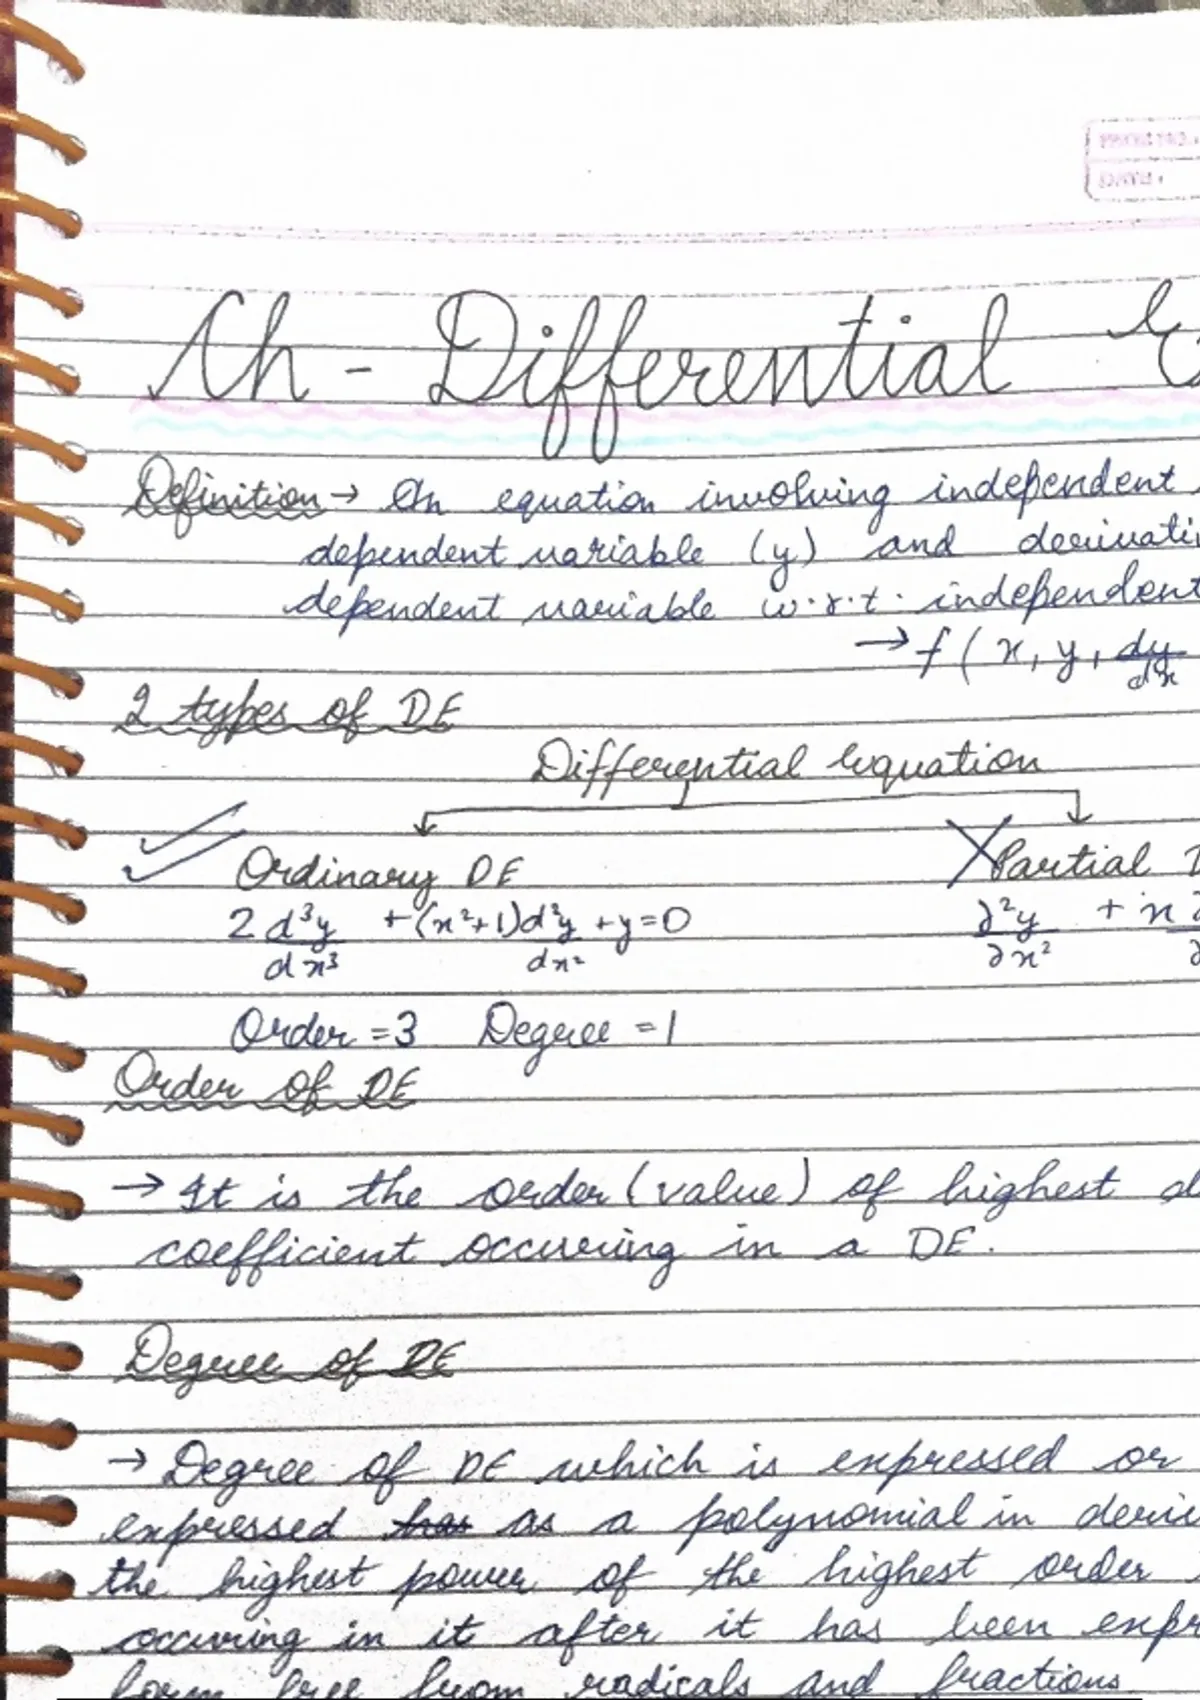 PAGE NO.:
DATE:
Ch - Differential E
Definition → An equation involving independent
dependent variable (y) and derivati
dependent variable w.r.t. independent
→ f ( x, y, dy/dx
2 types of DE
Differential Equation
Ordinary DE
Partial D
2 d³y/dx³ + (x²+1)d²y/dx² + y = 0
∂²y/∂x² + x ∂
Order = 3 Degree = 1
Order of DE
→ It is the order (value) of highest d
coefficient occuring in a DE.
Degree of DE
→ Degree of DE which is expressed or
expressed as a polynomial in deriv
the highest power of the highest order
occuring in it after it has been expr
form free from radicals and fractions.